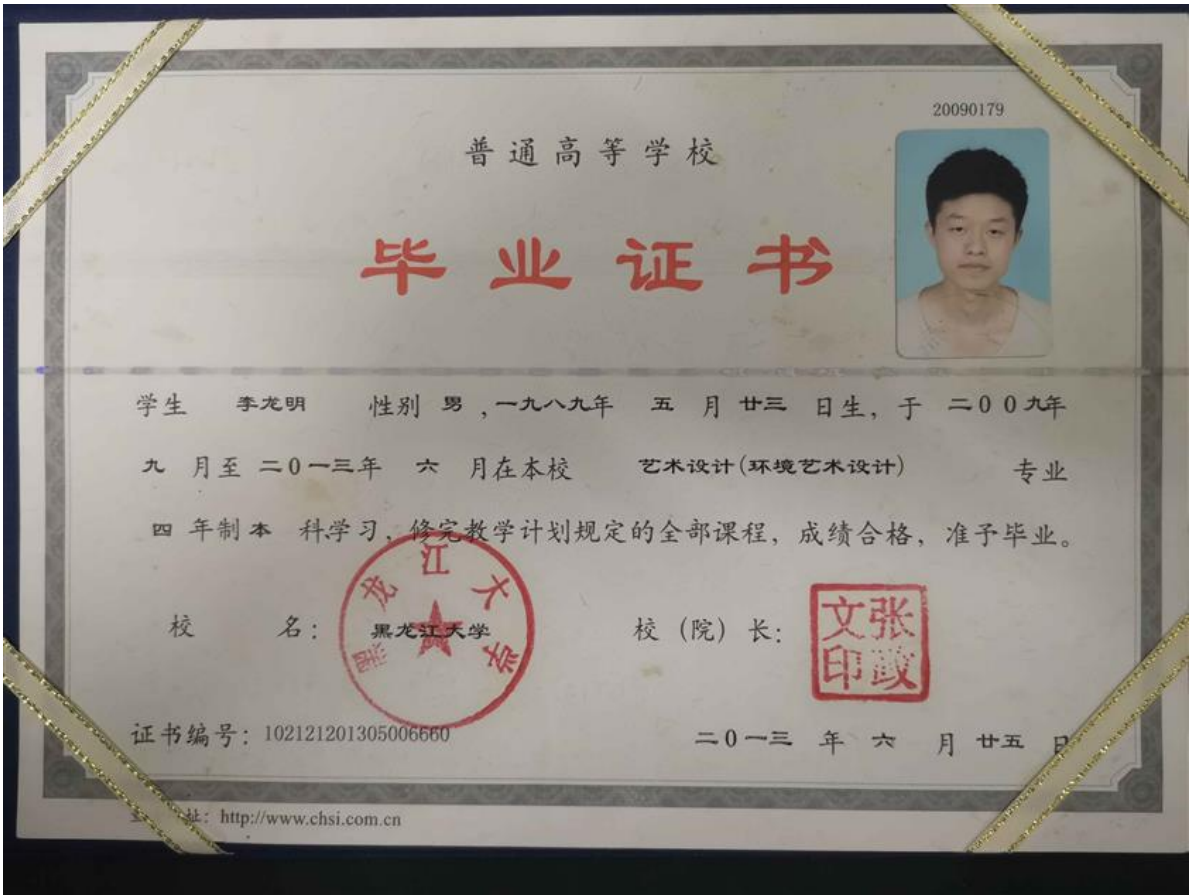 20090179
普通高等学校
毕业证书
学生 李龙明 性别 男 ,一九八九年 五 月 廿三 日生，于 二00九年
九 月至 二0一三年 六 月在本校 艺术设计(环境艺术设计) 专业
四 年制 本 科学习，修完教学计划规定的全部课程，成绩合格，准予毕业。
黑龙江大学
校 名： 黑龙江大学 校（院）长：
张政文印
证书编号：102121201305006660 二0一三 年 六 月 廿五 日
址：http://www.chsi.com.cn